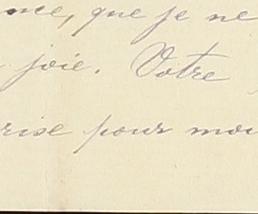 nce, que je ne
joie. Votre
rise pour moi